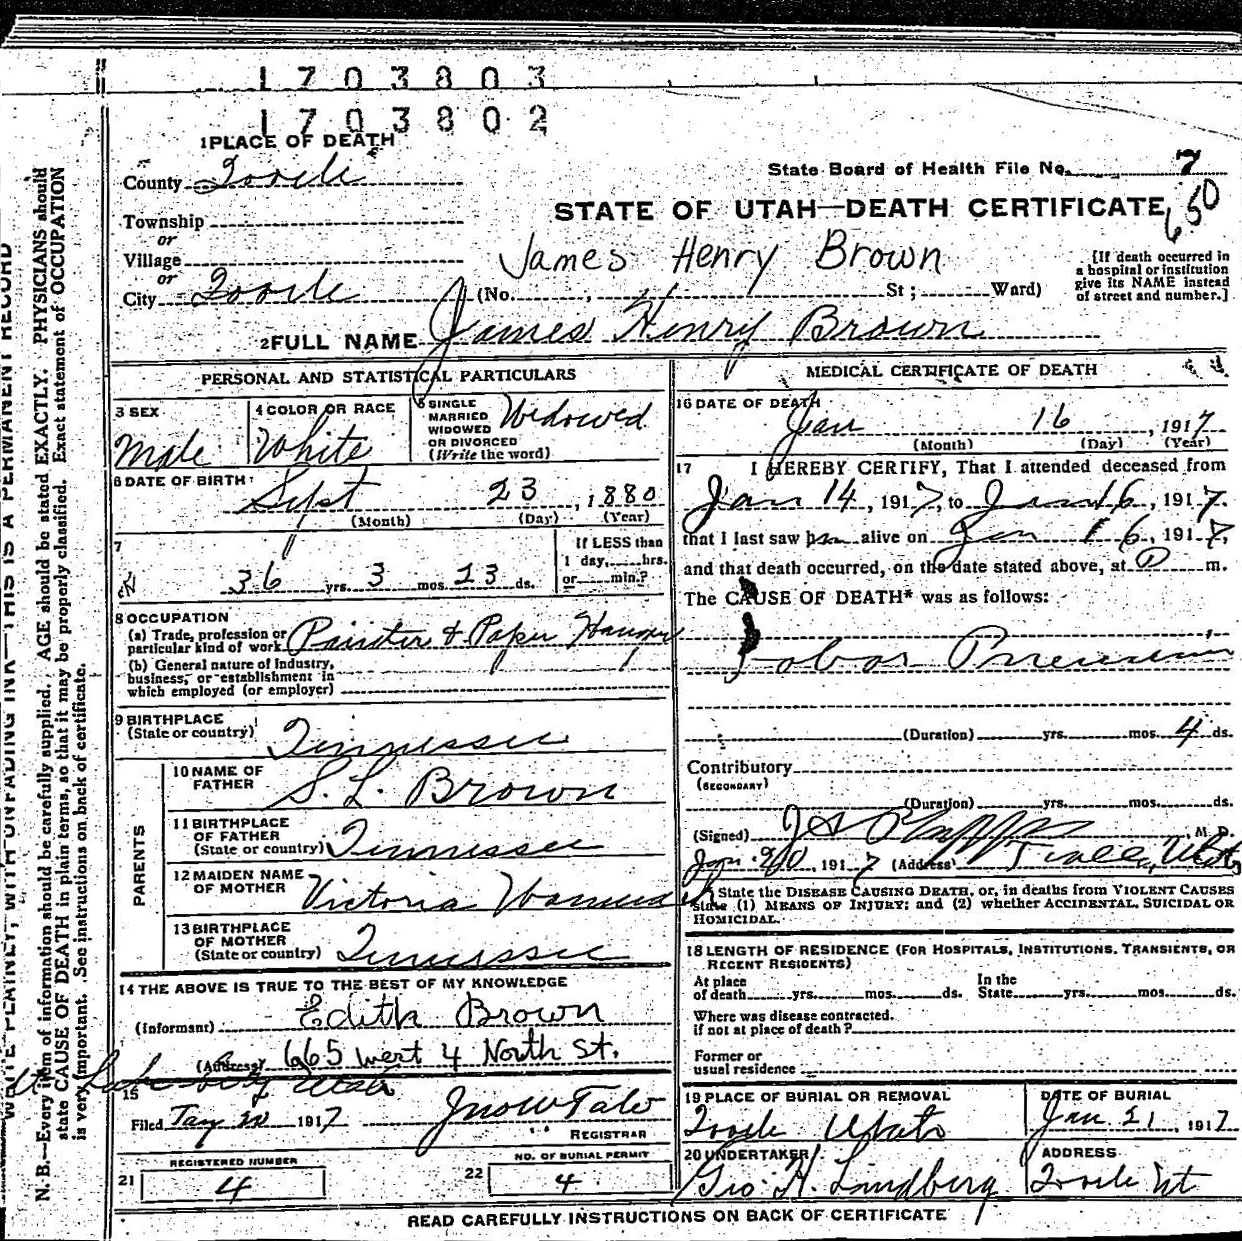 1703803
1703802
1 PLACE OF DEATH
County Tooele
State Board of Health File No. 7
650
Township
or
Village
or
City Tooele
STATE OF UTAH—DEATH CERTIFICATE
James Henry Brown
(No. , St ; Ward)
[If death occurred in
a hospital or institution
give its NAME instead
of street and number.]
2 FULL NAME James Henry Brown
PERSONAL AND STATISTICAL PARTICULARS
3 SEX
Male
4 COLOR OR RACE
White
5 SINGLE
MARRIED
WIDOWED
OR DIVORCED
(Write the word)
Widowed
6 DATE OF BIRTH
Sept 23, 1880
(Month) (Day) (Year)
7
36 yrs. 3 mos. 23 ds.
If LESS than
1 day, hrs.
or min.?
8 OCCUPATION
(a) Trade, profession or
particular kind of work Painter & Paper Hanger
(b) General nature of industry,
business, or establishment in
which employed (or employer)
9 BIRTHPLACE
(State or country)
Tennessee
PARENTS
10 NAME OF
FATHER
S. L. Brown
11 BIRTHPLACE
OF FATHER
(State or country) Tennessee
12 MAIDEN NAME
OF MOTHER Victoria
13 BIRTHPLACE
OF MOTHER
(State or country) Tennessee
14 THE ABOVE IS TRUE TO THE BEST OF MY KNOWLEDGE
(Informant) Edith Brown
(Address) 665 West 4 North St.
Lake City Utah
15
Filed Jan 20 1917
REGISTRAR
21 REGISTERED NUMBER
4
22 NO. OF BURIAL PERMIT
4
MEDICAL CERTIFICATE OF DEATH
16 DATE OF DEATH
Jan 16, 1917
(Month) (Day) (Year)
17 I HEREBY CERTIFY, That I attended deceased from
Jan 14, 1917, to Jan 16, 1917.
that I last saw him alive on Jan 16, 1917,
and that death occurred, on the date stated above, at m.
The CAUSE OF DEATH* was as follows:
Lobar Pneumonia
(Duration) yrs. mos. 4 ds.
Contributory
(SECONDARY)
(Duration) yrs. mos. ds.
(Signed) M. D.
Jan. 20, 1917 (Address) Tooele, Utah
* State the DISEASE CAUSING DEATH, or, in deaths from VIOLENT CAUSES
state (1) MEANS OF INJURY; and (2) whether ACCIDENTAL, SUICIDAL OR
HOMICIDAL.
18 LENGTH OF RESIDENCE (FOR HOSPITALS, INSTITUTIONS, TRANSIENTS, OR
RECENT RESIDENTS)
At place
of death yrs. mos. ds.
In the
State yrs. mos. ds.
Where was disease contracted,
if not at place of death?
Former or
usual residence
19 PLACE OF BURIAL OR REMOVAL
Tooele Utah
DATE OF BURIAL
Jan 21, 1917
20 UNDERTAKER
Geo. H. Lundberg
ADDRESS
Tooele Ut
READ CAREFULLY INSTRUCTIONS ON BACK OF CERTIFICATE
WRITE PLAINLY, WITH UNFADING INK—THIS IS A PERMANENT RECORD
N. B.—Every item of information should be carefully supplied. AGE should be stated EXACTLY. PHYSICIANS should
state CAUSE OF DEATH in plain terms, so that it may be properly classified. Exact statement of OCCUPATION
is very important. See instructions on back of certificate.